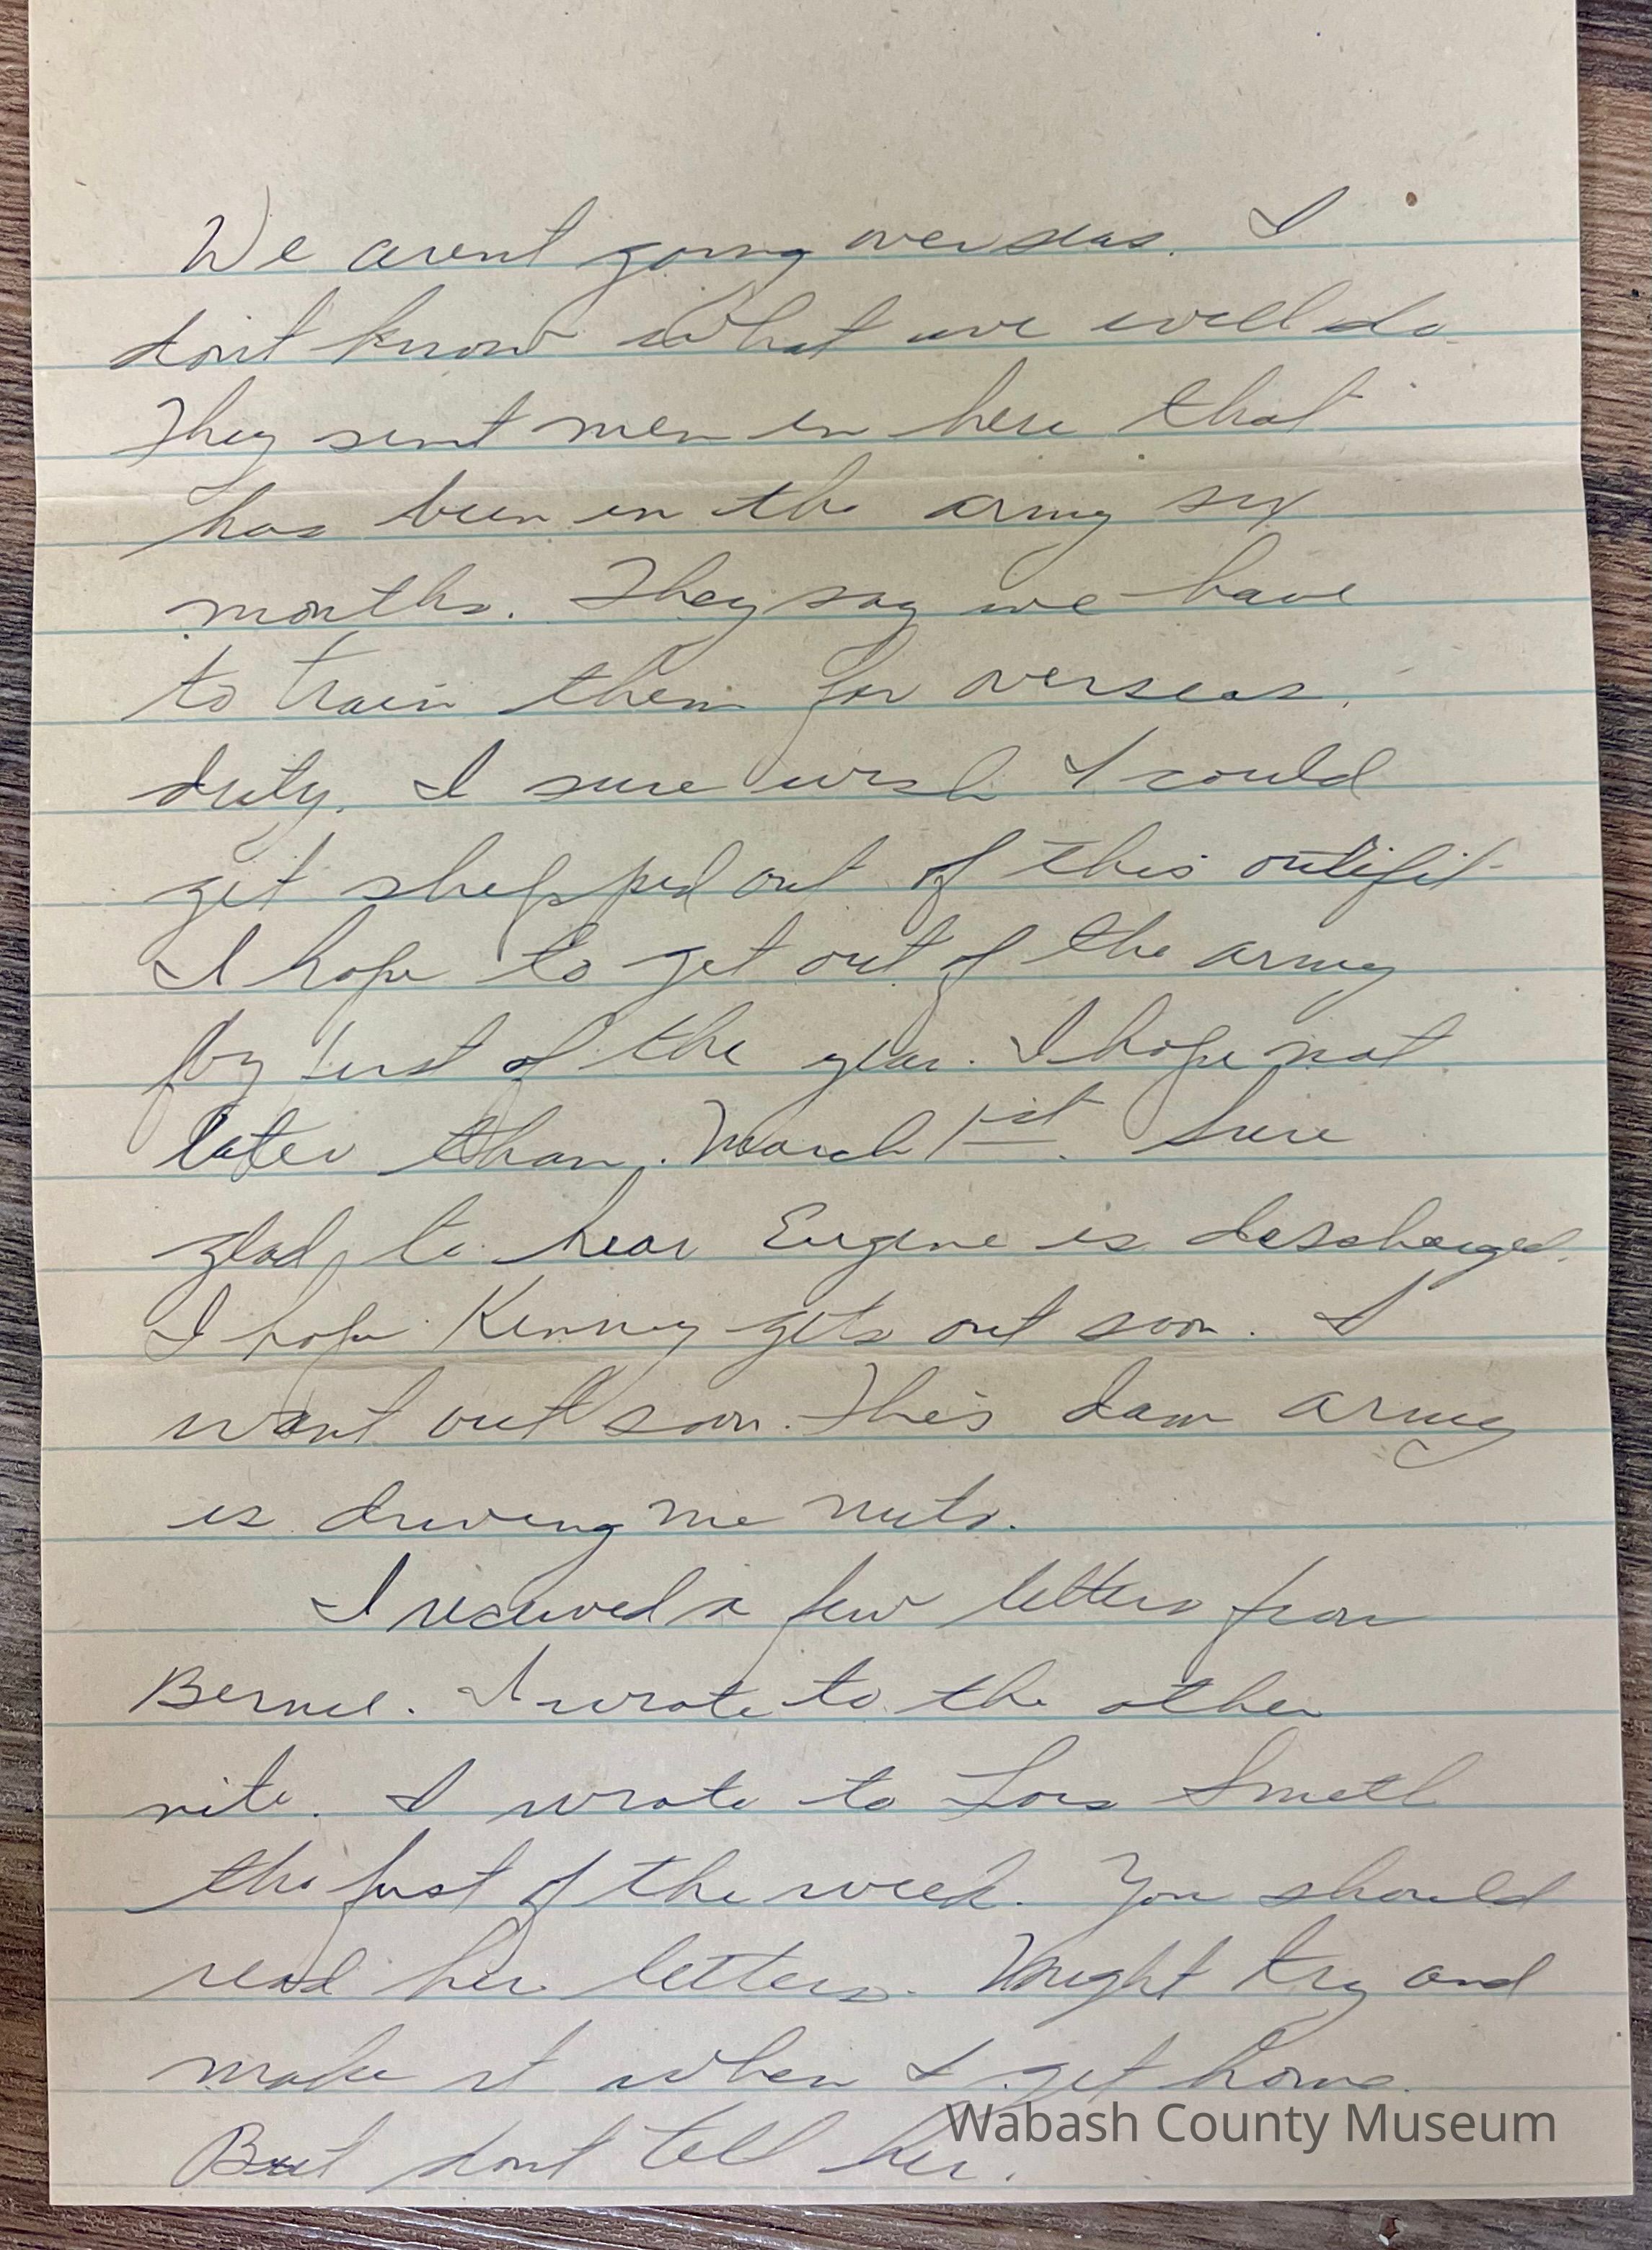 We arent going overseas. I
dont know what we will do.
They sent men in here that
has been in the army six
months. They say we have
to train them for overseas
duty. I sure wish I could
get shipped out of this outifit
I hope to get out of the army
by first of the year. I hope not
later than March 1st. Sure
glad to hear Eugene is descharged.
I hope Kenny gets out soon. I
want out soon. This dam army
is driving me nuts.
I received a few letters from
Bernie. I wrote to the other
nite. I wrote to Lois Smith
the first of the week. You should
read her letters. Might try and
make it when I get home.
But dont tell her.
Wabash County Museum